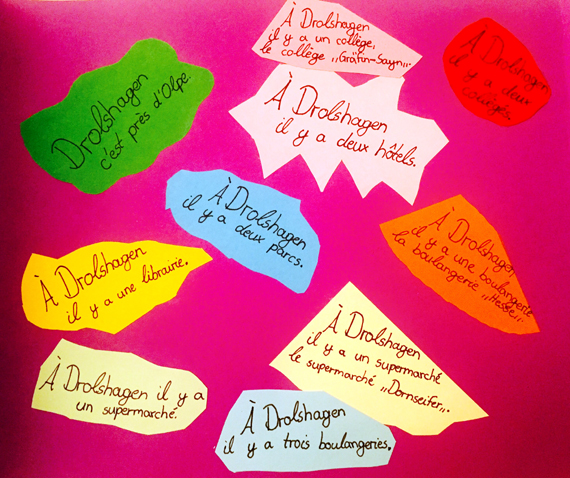 À Drolshagen
il y a un collège,
le collège „Gräfin-Sayn".
À Drolshagen
il y a deux
Drolshagen
c'est près d'Olpe.
À Drolshagen
il y a deux hôtels.
À Drolshagen
il y a deux parcs.
À Drolshagen,
il y a une boulangerie
la boulangerie „Hesse".
À Drolshagen
il y a une librairie.
À Drolshagen
il y a un supermarché
le supermarché „Dornseifer".
À Drolshagen il y a
un supermarché.
À Drolshagen
il y a trois boulangeries.